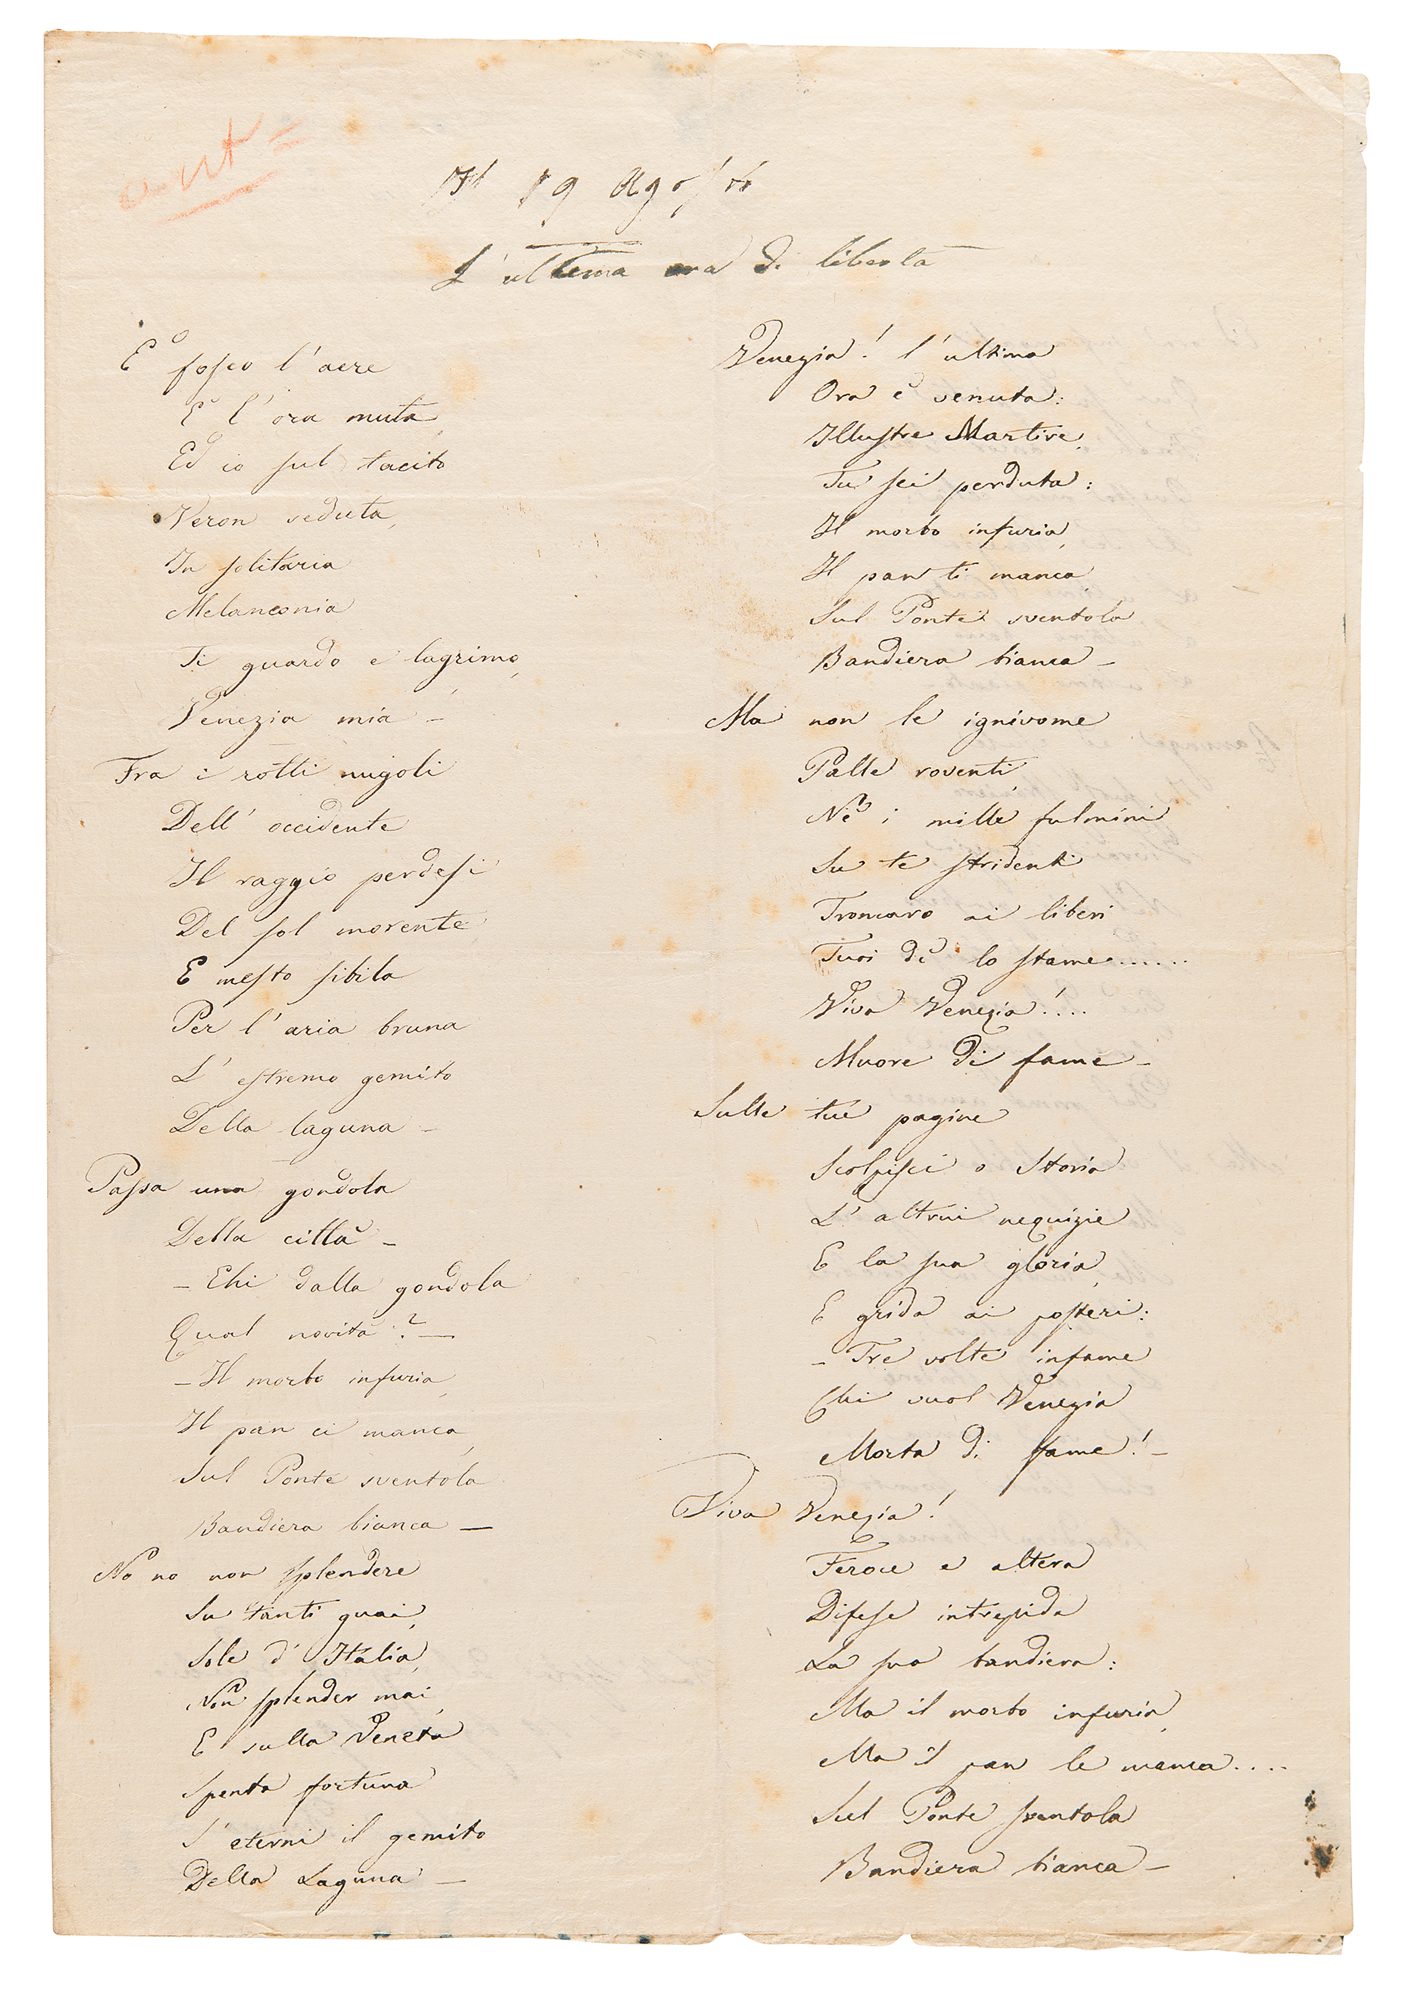 aut =
Il 19 Agosto
L'ultima ora di libertà
È fosco l'aere
È l'ora muta,
Ed io sul tacito
Veron seduta,
In solitaria
Melanconia
Ti guardo e lagrimo,
Venezia mia –
Fra i rotti nugoli
Dell' occidente
Il raggio perdesi
Del sol morente
E mesto sibila
Per l'aria bruna
L' estremo gemito
Della laguna –
Passa una gondola
Della città –
– Ehi dalla gondola
Qual novità? –
– Il morbo infuria,
Il pan ci manca,
Sul Ponte sventola
Bandiera bianca –
No no non splendere
Su tanti guai,
Sole d' Italia,
Non splender mai,
E sulla Veneta
Spenta fortuna
S' eterni il gemito
Della Laguna –
Venezia! l'ultima
Ora è venuta:
Illustre Martire,
Tu sei perduta:
Il morbo infuria,
Il pan ti manca
Sul Ponte sventola
Bandiera bianca –
Ma non le ignivome
Palle roventi
Nè i mille fulmini
Su te stridenti
Troncaro ai liberi
Tuoi dì lo stame......
Viva Venezia!...
Muore di fame –
Sulle tue pagine
Scolpisci o Storia
L' altrui nequizie
E la sua gloria,
E grida ai posteri:
– Tre volte infame
Chi vuol Venezia
Morta di fame! –
Viva Venezia!
Feroce e altera
Difese intrepida
La sua bandiera:
Ma il morbo infuria,
Ma il pan le manca....
Sul Ponte sventola
Bandiera bianca –